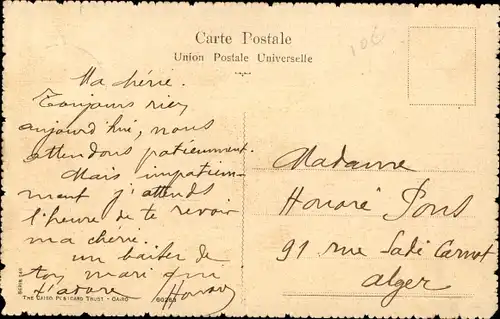 Carte Postale
Union Postale Universelle
10€
Ma chérie.
Toujours rien
aujourd'hui, nous
attendons patiemment.
Mais impatiem-
ment j'attends
l'heure de te revoir
ma chérie.
un baiser de
ton mari qui
t'adore Honoré
Madame
Honoré Pons
91 rue Sadi Carnot
Alger
SERIE 541
THE CAIRO POSTCARD TRUST - CAIRO 50263